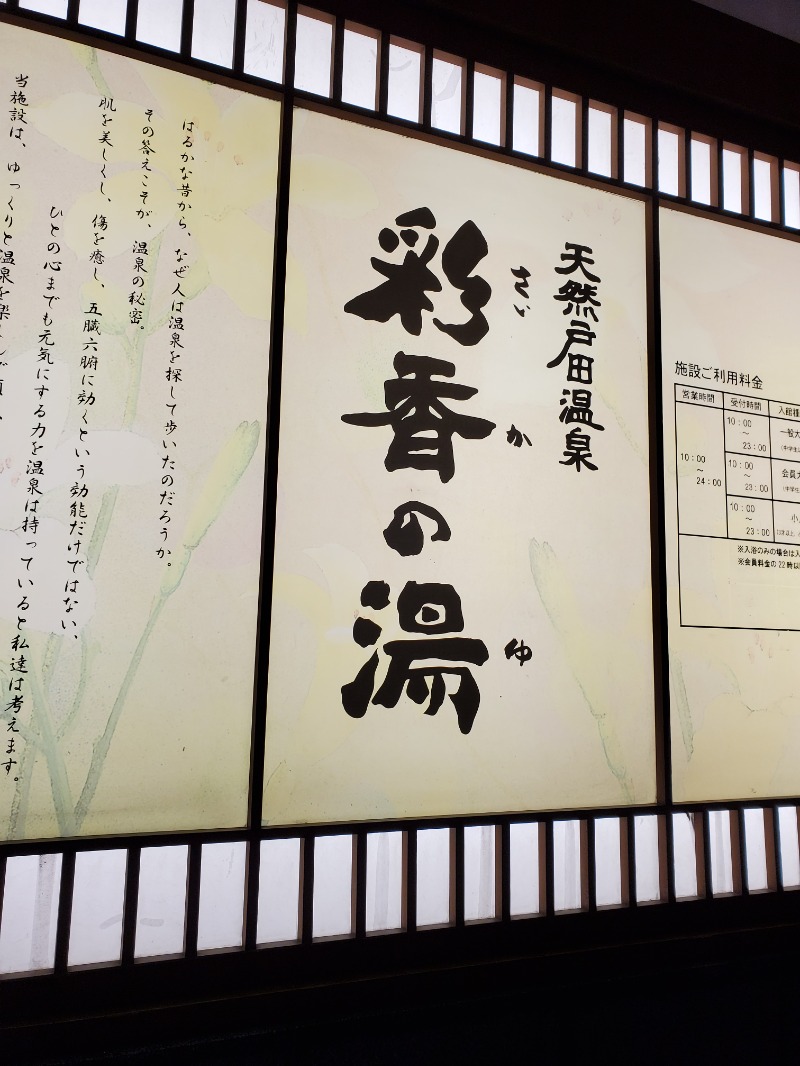 天然戸田温泉
彩香の湯
さい
か
ゆ
はるかな昔から、なぜ人は温泉を探して歩いたのだろうか。
その答えこそが、温泉の秘密。
肌を美しくし、傷を癒し、五臓六腑に効くという効能だけではない、
ひとの心までも元気にする力を温泉は持っていると私達は考えます。
当施設は、ゆっくりと温泉を
施設ご利用料金
営業時間 受付時間
10:00
〜
24:00
10:00
〜
23:00
一般大
10:00
〜
23:00
会員大
10:00
〜
23:00
小
※入浴のみの場合は入
※会員料金の22時以